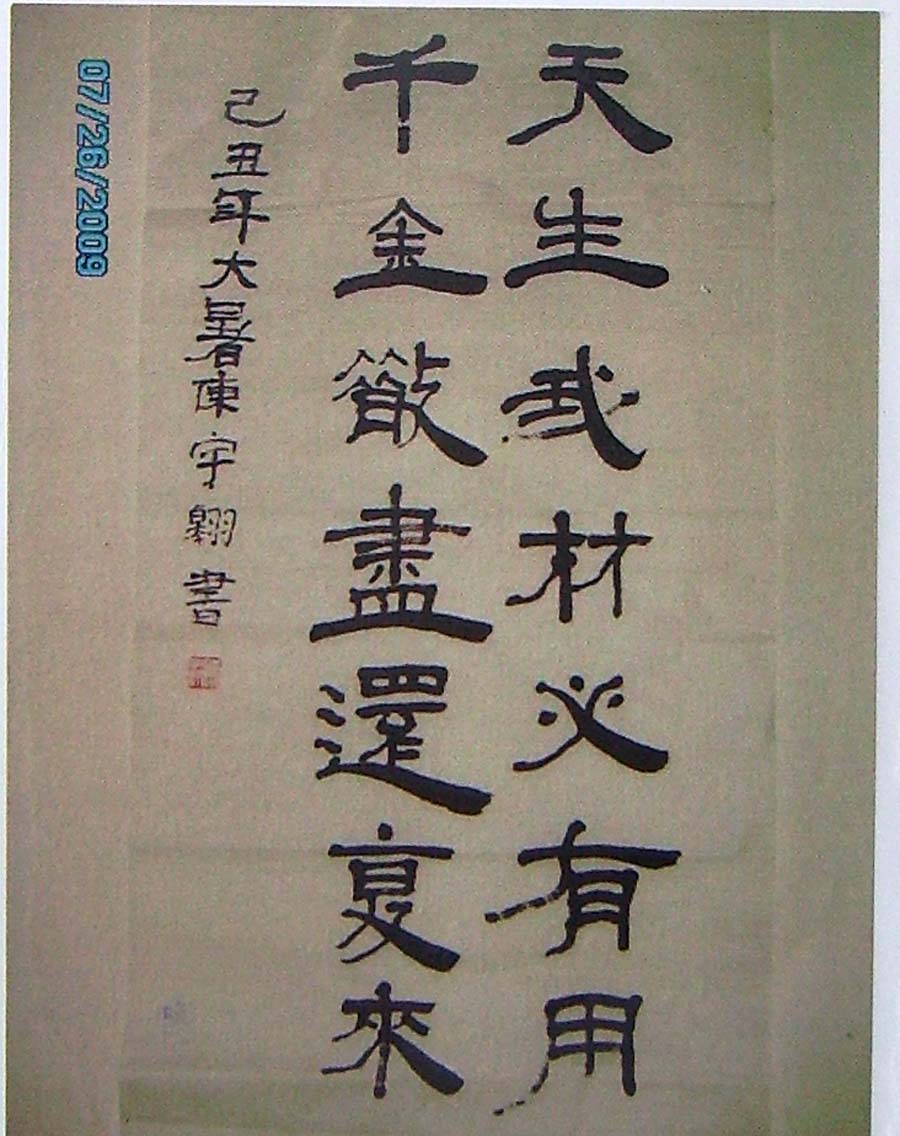 天生我材必有用
千金散盡還复來
己丑年大暑陳宇翺書
07/26/2009